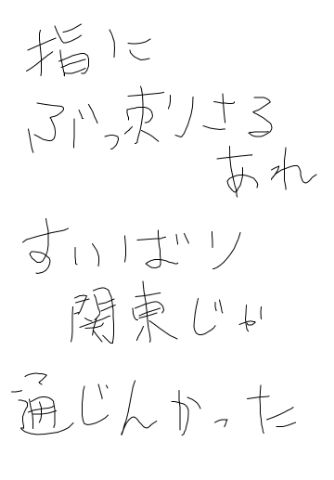 指に
ぶっ刺りさる
あれ
すいばり
関東じゃ
通じんかった